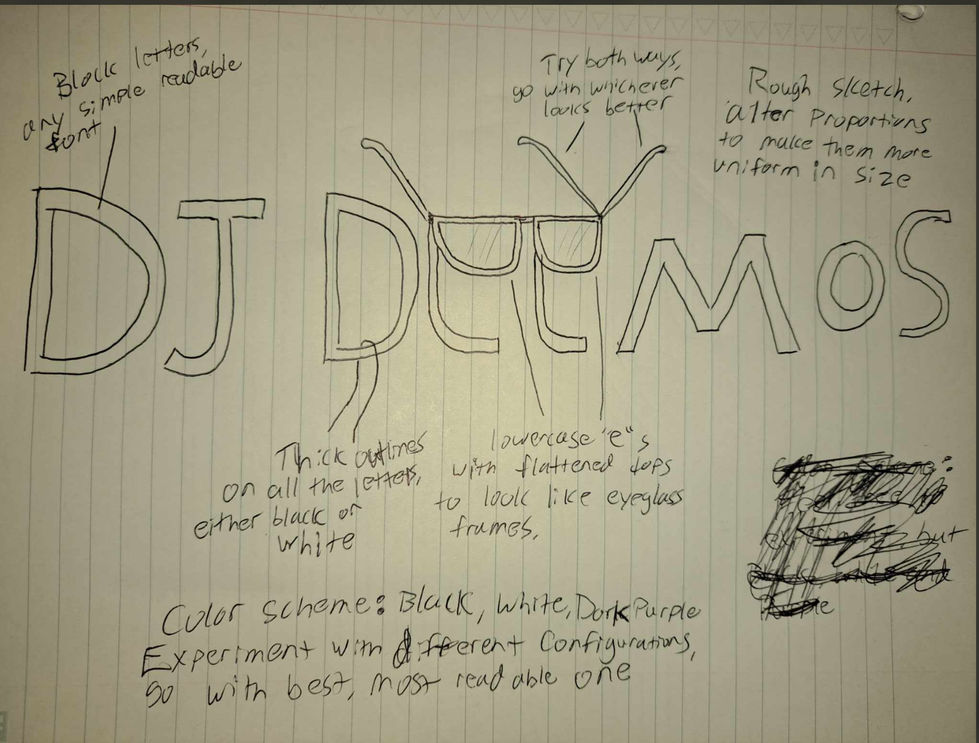 Block letters,
any simple readable
font
Try both ways,
go with whichever
looks better
Rough sketch,
alter proportions
to make them more
uniform in size
DJ DeeMOS
Thick outlines
on all the letters,
either black or
white
lowercase "e"s
with flattened tops
to look like eyeglass
frames.
but
Purple
Color scheme: Black, White, Dark Purple
Experiment with different Configurations,
go with best, most readable one